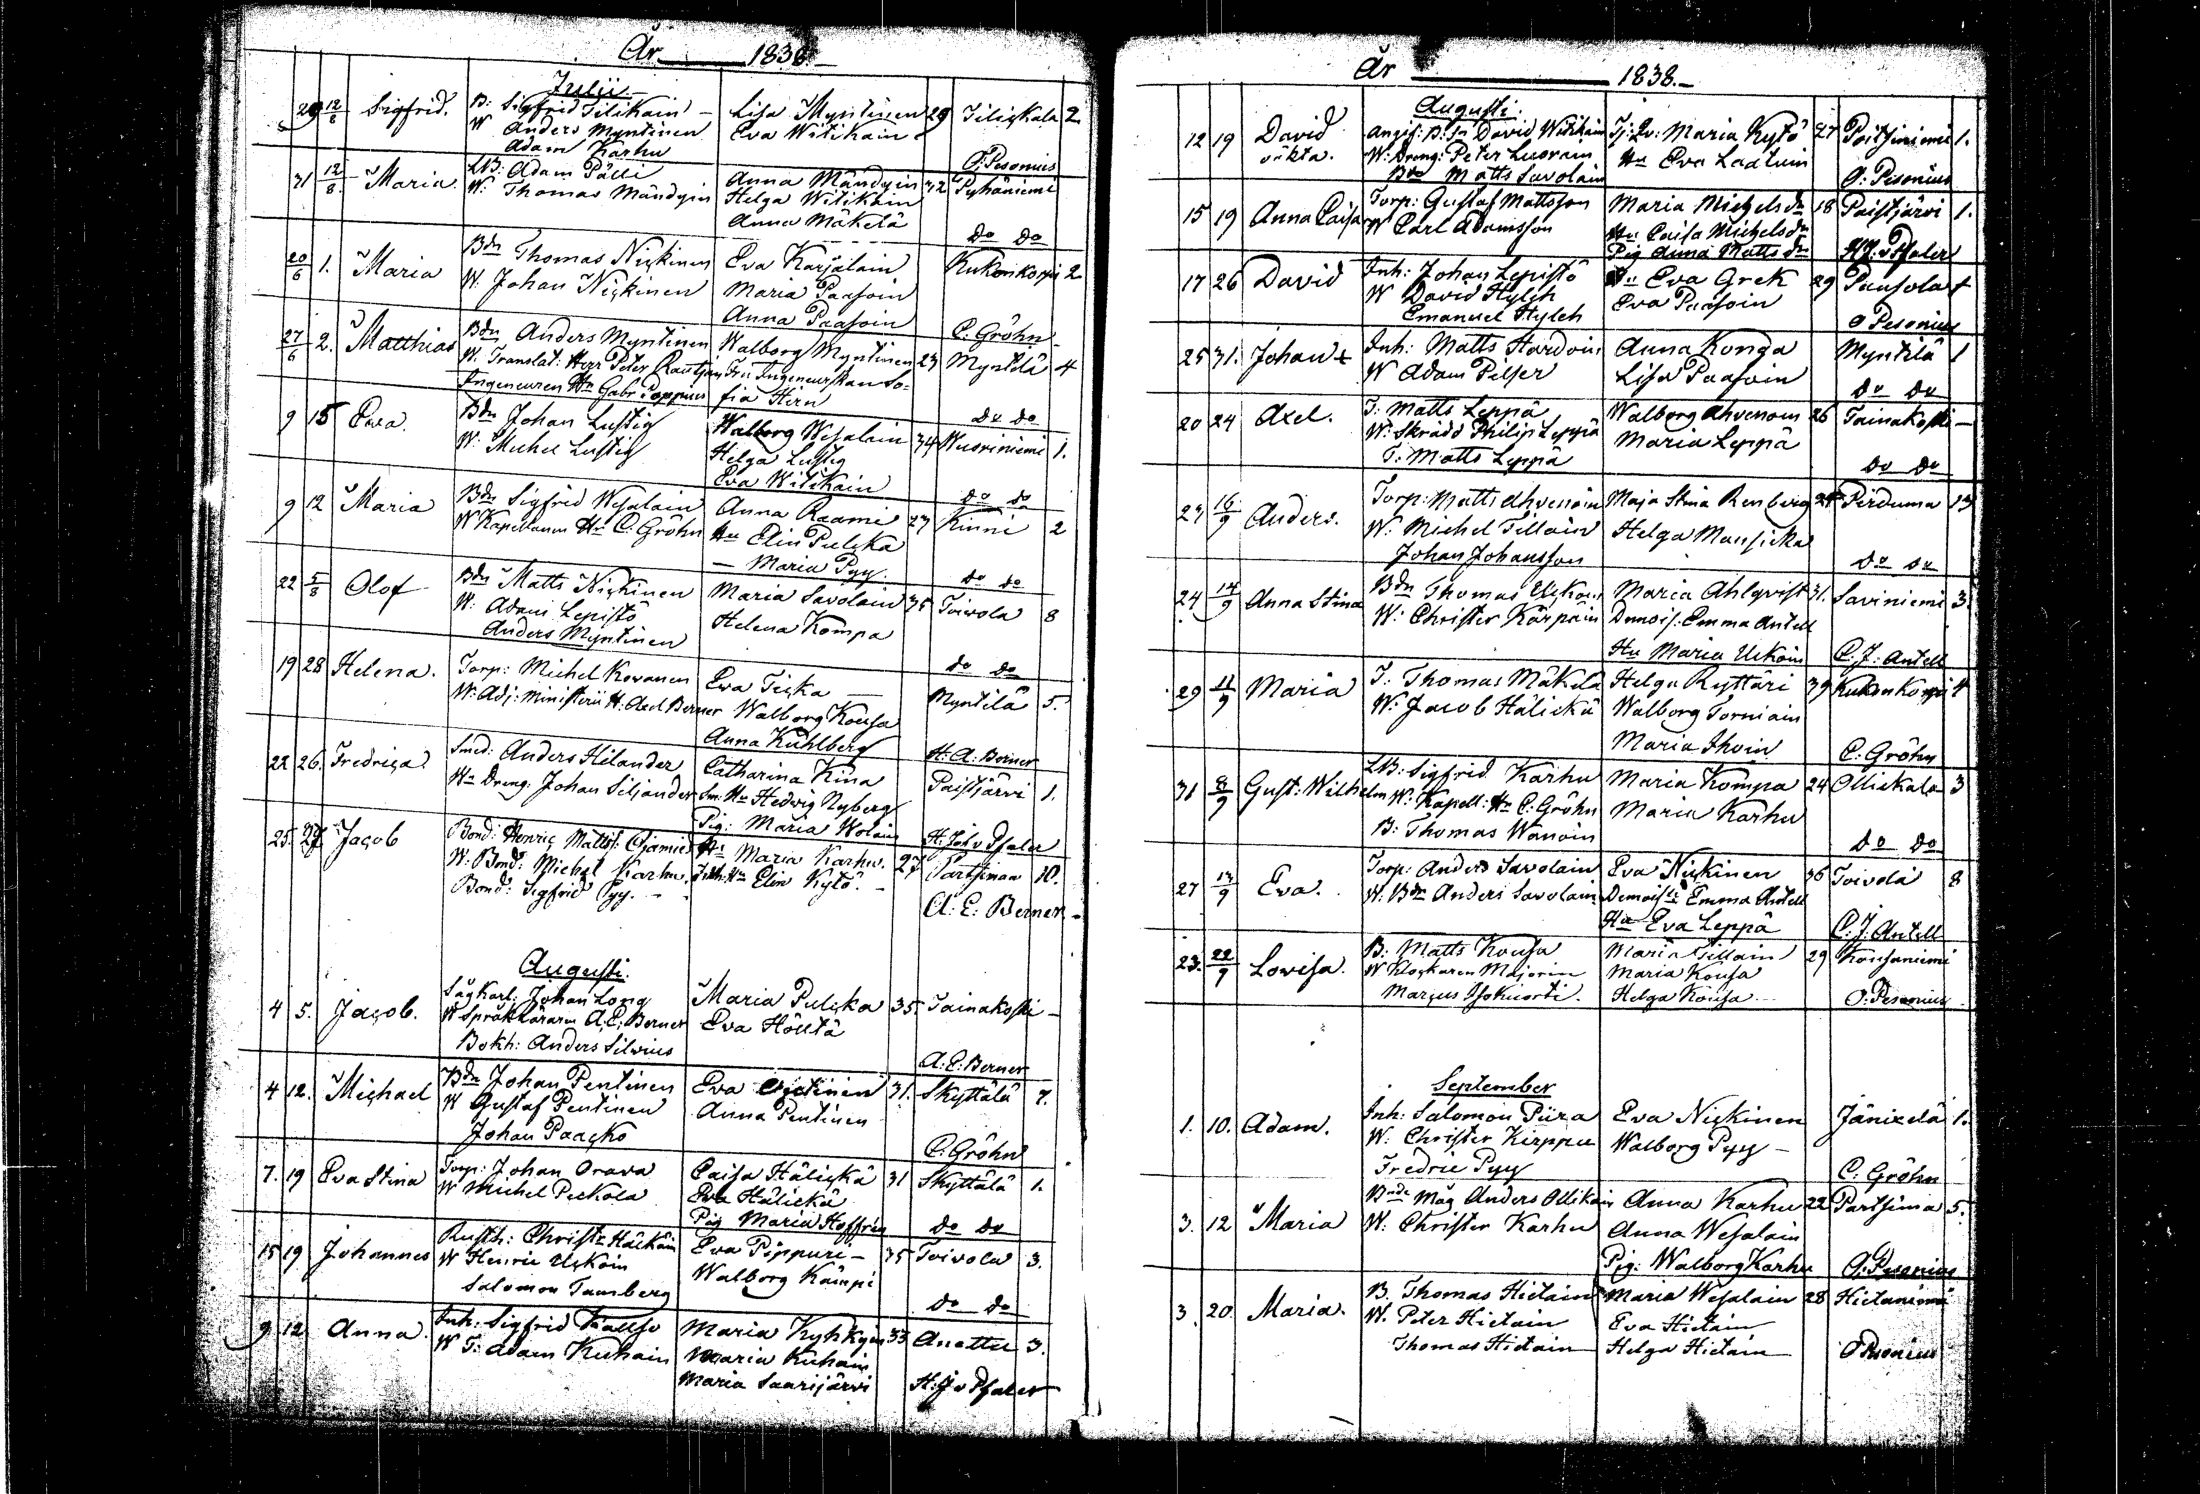 År 1838
Julii
29 12/8 Sigfrid. B: Sigfrid Tilikain Lisa Myntinen 29 Tiliskala 2
W Anders Myntinen Eva Witikain
Adam Karhu O: Pesonius
31 12/8 Maria LB: Adam Pälli Anna Mändyin 32 Pyhäniemi
W: Thomas Mändyin Helga Witikain
Anna Mäkelä Do Do
20/6 1. Maria Bdn Thomas Nickinen Eva Karjalain Kukonkorpi 2
W. Johan Nickinen Maria Paasoin
Anna Paasoin C. Gröhn
27/6 2. Matthias Bdn Anders Myntinen Walborg Myntinen 23 Myntilä 4
W. Translat: Herr Peter Fru Ingeneurskan So-
Ingeneuren Hr Gabr Poppius fia Hirn Do Do
9 15 Eva. Bdn Johan Lustig Walborg Wesalain 34 Wuoriniemi 1.
W: Michel Lustig Helga Lustig
Eva Witikain Do Do
9 12 Maria Bdn Sigfrid Wesalain Anna Raami 27 Kinni 2
W Kapellanen Hr C. Gröhn Hu Elin Pulcka
— Maria Pyy. Do Do
22 5/8 Olof Bdn Matts Nickinen Maria Savolain 35 Toivola 8
W: Adam Lepistö Helena Kompa
Anders Myntinen Do Do
19 28 Helena. Torp: Michel Kovanen Eva Ticka — Myntilä 5.
W: Adj: Ministerii H: Axel Berner Walborg Kousa
Anna Kuhlberg H: A: Berner
22 26. Fredrica. Smed: Anders Hilander Catharina Kina Paistjärvi 1.
Wn Dreng: Johan Siljander Sm: Hu Hedvig Nyberg
Pig: Maria Wolain
25. 27 Jacob Bond: Henric Mattss: Ojamies Hu Maria Karhu. 27 Partsimaa 10.
W: Bond: Michel Karhu. Hu Elin Kytö. —
Bond: Sigfrid Pyy. — A: E: Berner
Augusti.
4 5. Jacob. SågKarl: Johan Long Maria Pulcka 35. Tainakoski —
W Språkläraren A: E: Berner Eva Hölttä
Bokh: Anders Silvius A: E: Berner
4 12. Michael Bdn Johan Pentinen Eva 31. Skyttälä 7.
W Gustaf Pentinen Anna Pentinen
Johan Paacko C. Gröhn
7. 19 Eva Stina Torp: Johan Orava Caisa Hälickä 31 Skyttälä 1.
W Michel Peckola Eva Hälickä
Pig Maria Hoffrin Do Do
15 19 Johannes Rusth: Christr Eva Pippuri — 35 Toivola 3.
W Henric Uckoin Walborg Kämpi
Salomon Tamberg Do Do
9 12 Anna. Inh: Sigfrid Maria Kyhkyin 33 Anettu 3.
W T: Adam Kuhain Maria Kuhain
Maria Saarijärvi
År 1838.—
Augusti
12 19 David Angif: B: Sn David Witikain Tj: Qv: Maria Kytö 27 Poitjiniemi 1.
oäkta. W: Dreng: Peter Luorain Hu Eva Laatuin
Bdn Matts Savolain O: Pesonius
15 19 Anna Caisa Torp: Gustaf Mattsson Maria Michelsdr 18 Paistjärvi 1.
W Carl Adamsson Hu Caisa Michelsdr
Pig Anna Mattsdr
17 26 David Inh: Johan Lepistö Hu Eva Grek 29 Paasola
W David Hylch Eva Paasoin
Emanuel Hylch O Pesonius
25 31. Johan Inh: Matts Hardoin Anna Konga Myntilä 1
W Adam Pelser Lisa Paasoin Do Do
20 24 Axel. T: Matts Leppä Walborg Ahvenoin 26 Tainakoski —
W: Skrädd Philip Leppä Maria Leppä
T: Matts Leppä Do Do
23 16/9 Anders. Torp: Matts Ahvenoin Maja Stina Renberg 24 Perduma 13
W: Michel Tillain Helga Mansicka
Johan Johansson Do Do
24 14/9 Anna Stina Bdn Thomas Uckoin Maria Ahlqvist 31. Saviniemi 3
W: Christer Kärpäin Demois: Emma Antell
Hu Maria Uckoin C. J: Antell
29 11/9 Maria T: Thomas Mäkelä Helga Ryttäri 39 Kukonkorpi 4
W: Jacob Hälickä Walborg Torniain
Maria Ihoin C: Gröhn
31 8/9 Gust: Wilhelm LB: Sigfrid Karhu Maria Kompa 24 Ollickala 3
W: Kapell: Hr C: Gröhn Maria Karhu
B: Thomas Wänöin Do Do
27 13/9 Eva. Torp: Anders Savolain Eva Nickinen 36 Toivola 8
W: Bdn Anders Savolain Demoisle Emma Antell
Hu Eva Leppä C: J: Antell
23. 22/9 Lovisa. B: Matts Kousa Maria Tillain 29 Kousaniemi
W Klockaren Majorin Maria Kousa
Marcus Isokuorti. Helga Kousa O: Pesonius
September
1. 10. Adam. Inh: Salomon Piira Eva Nickinen Jänixelä 1.
W: Christer Kirppu Walborg Pyy —
Fredric Pyy C: Gröhn
3. 12 Maria Bnde Måg Anders Ollikain Anna Karhu 22 Partsima 5.
W: Christer Karhu Anna Wesalain
Pig: Walborg Karhu O: Pesonius
3 20 Maria. B. Thomas Hietain Maria Wesalain 28 Hietaniemi
W. Peter Hietain Eva Hietain
Thomas Hietain Helga Hietain O Pesonius